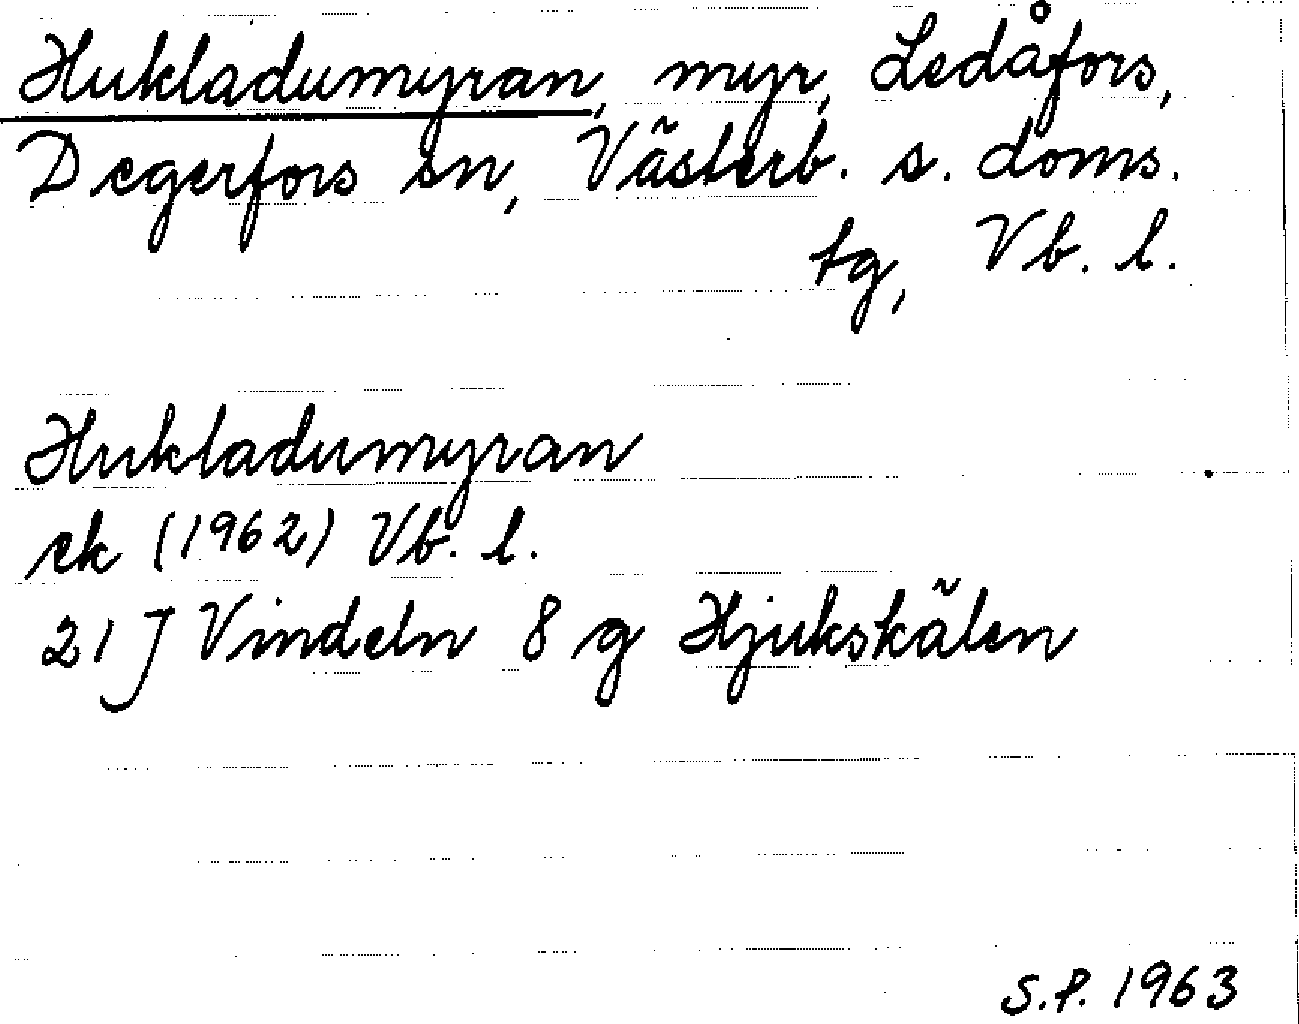 Hukladumyran, myr, Ledåfors,
Degerfors sn, Västerb. s. doms.
tg, Vb. l.
Hukladumyran
ek (1962) Vb. l.
21 J Vindeln 8 g Hjukskälen
S.P. 1963